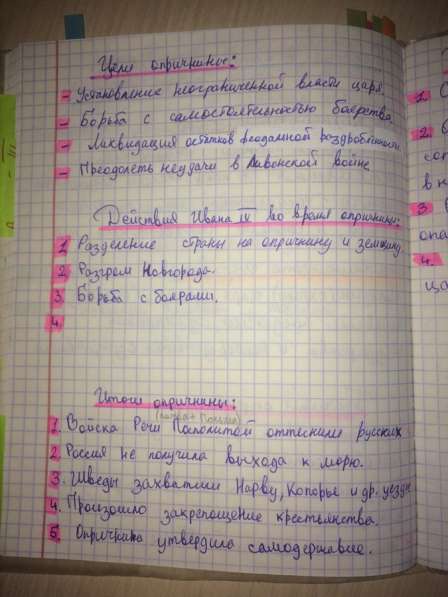 Цели опричнины:
- Установление неограниченной власти царя.
- Борьба с самостоятельностью боярства
- Ликвидация остатков феодальной раздробленности
- Преодолеть неудачи в Ливонской войне
Действия Ивана IV во время опричнины:
1 Разделение страны на опричнину и земщину.
2. Разгром Новгорода.
3. Борьба с боярами.
4.
Итоги опричнины:
(Литва + Польша)
1. Войска Речи Посполитой оттеснили русских
2. Россия не получила выхода к морю.
3. Шведы захватили Нарву, Копорье и др. уезды
4. Произошло закрепощение крестьянства.
5. Опричнина утвердила самодержавие.
1. С
2.
3
опа
4.
ца